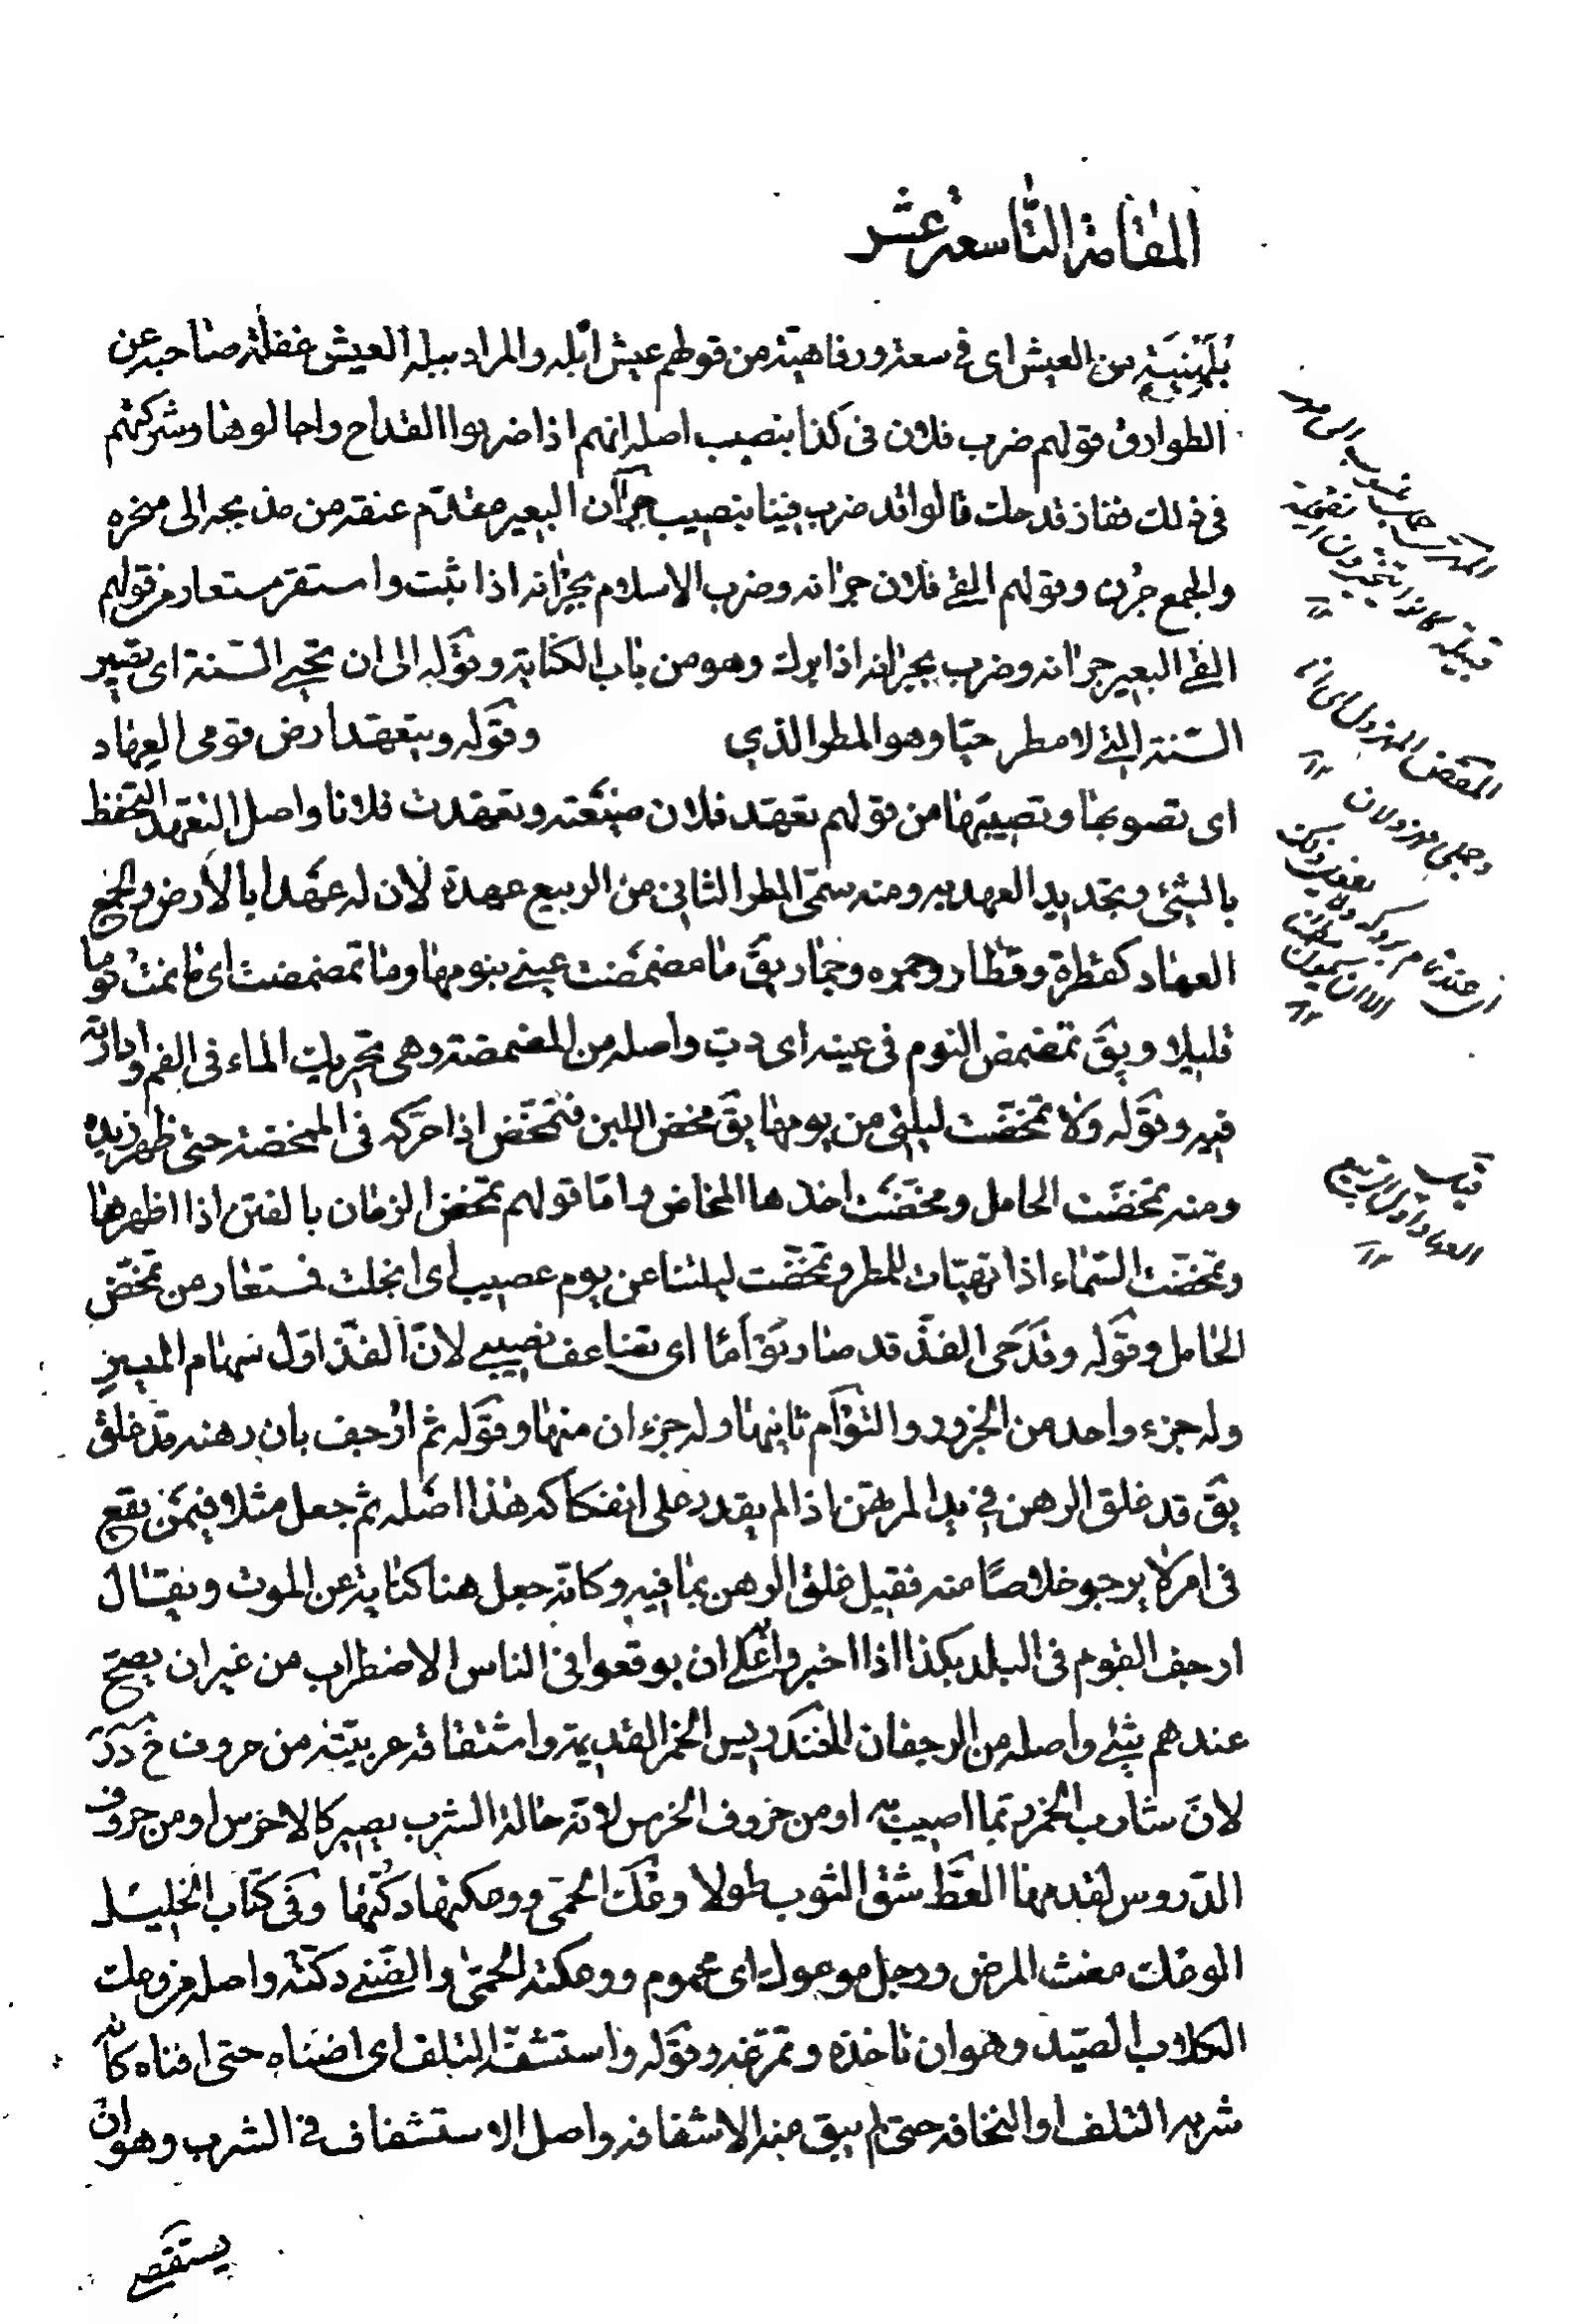 المقامة التاسعة عشر
بُلَهْنِيَةٍ من العيش اى فى سعة ورفاهية من قولهم عيش ابله والمراد ببله العيش غفلة صاحبه عن
الطوارق قولهم ضرب فلان فى كذا بنصيب اصله انهم اذا ضربوا القداح واجالوها وشركتهم
فى ذلك ففاز قدحك قالوا قد ضرب فينا بنصيب جرآن البعير مقدّم عنقه من مذبحه الى منخره
والجمع جُرُن وقولهم القى فلان جرانه وضرب الاسلام بجرانه اذا ثبت واستقر مستعار من قولهم
القى البعير جرانه وضرب بجرانه اذا برك وهو من باب الكناية وقوله الى ان تحيى السّنة اى تصير
السّنة التى لا مطر حيّا وهو المطر الذي وقوله ويتعهّد ارض قومى العِهاد
اى تصوبها وتصيبها من قولهم تعهّد فلان ضيعته وتعهّدت فلانا واصل التعهد التحفظ
بالشئ وتجديد العهد به ومنه سمّى المطر الثانى من الربيع عهدة لان له عهدا بالأرض والجمع
العهاد كقطرة وقطار وجمره وجمار يقَ ما مضمضت عينى بنومها وما تمضمضت اى ما نمت نوما
قليلا ويقَ تمضمض النوم فى عينه اى دبّ واصله من المضمضة وهى تحريك الماء فى الفم وادارته
فيه وقوله ولا تمخّضت ليلتى من يومها يقَ مخض اللبن فتمخّض اذا حرّكه فى الممخضة حتى ظهر زبده
ومنه تمخّضت الحامل ومخضت اخذها المخاض وامّا قولهم تمخض الزمان بالفتن اذا اظهرها
وتمخّضت السّماء اذا تهيّات للمطر وتمخّضت ليلتنا عن يوم عصيب اى انجلت فمستعار من تمخّض
الحامل وقوله وقَدَحى الفذّ قد صار تؤامًا اى تضاعف نصيبى لانّ الفذّ اوّل سهام الميسر
وله جزء واحد من الجزور والتوْآم ثانيها وله جزءان منها وقوله ثم ارُجف بان رهنه قد غلق
يقَ قد غلق الرهن في يد المرتهن اذا لم يقدر على انفكاكه هذا اصله ثم جعل مثلا فيمن يقع
فى امر لا يرجو خلاصًا منه فقيل غلق الرهن بما فيه وكانّه جعل هنا كناية عن الموت ويقال
ارجف القوم فى البلد بكذا اذا اخبروا على ان يوقعوا فى الناس الاضطراب من غير ان يصحّ
عندهم شئ واصله من الرجفان الخندريس الخمر القديمة واشتقاقه عربيّته من حروف خ د ر
لانّ شارب الخمر ربّما اصيب به او من حروف الخرس لانّه حالة الشرب يصير كالاخرس او من حروف
الدّروس لقدمها العَطّ شق الثوب طولا وعْكَ الحمّى ووعكتها دكّتها وفى كتاب الخليل
الوعك مغث المرض ورجل موعوك اى محموم ووعكته الحمّى والضّنى دكّته واصله من وعك
الكلاب الصّيد وهو ان تاخذه وتمرّغه وقوله واستشفّه التلف اى اضناه حتى افناه كانّه
شربه التلف او النحافة حتى لم يبق منه الا شفافه واصل الاستشفاف في الشرب وهو ان
يستقصى
قيل
العهاد اوّل الربيع